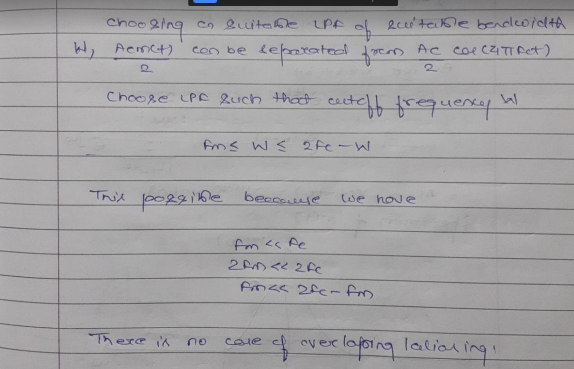 choosing an suitable LPF of suitable bandwidth
W, Acm(t)/2 can be separated from Ac/2 cos(4πfct)
Choose LPF such that cutoff frequency W
fm ≤ W ≤ 2fc - W
This possible because we have
fm << fc
2fm << 2fc
fm << 2fc - fm
There is no case of overlaping laliasing.